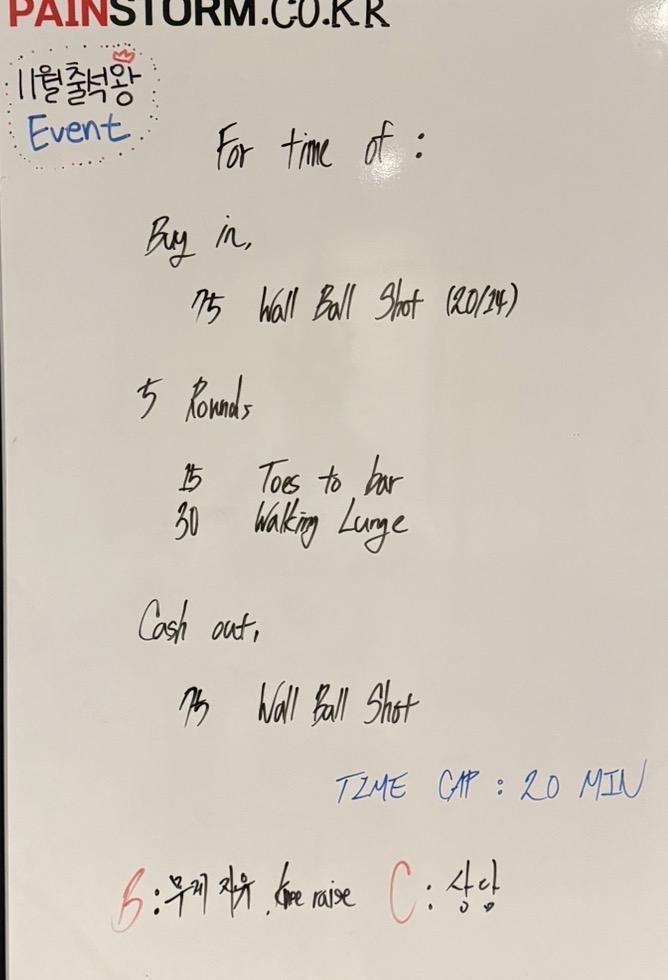 PAINSTORM.CO.KR
11월출석왕
Event
For time of :
Buy in,
75 Wall Ball Shot (20/14)
5 Rounds
15 Toes to bar
30 Walking Lunge
Cash out,
75 Wall Ball Shot
TIME CAP : 20 MIN
B : 무게 자유, knee raise C : 상담